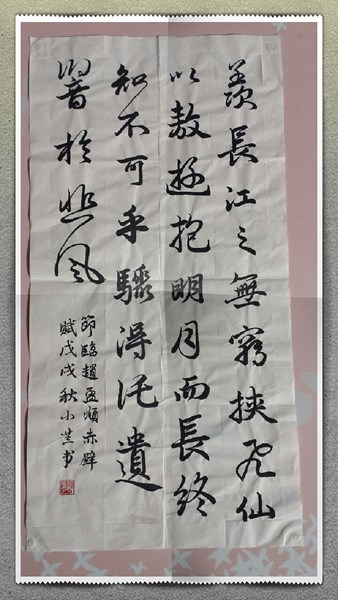 羨長江之無窮挾飛仙
以敖遊抱明月而長終
知不可乎驟得托遺
響於悲風
節臨趙孟頫赤壁
賦戊戌秋小生书